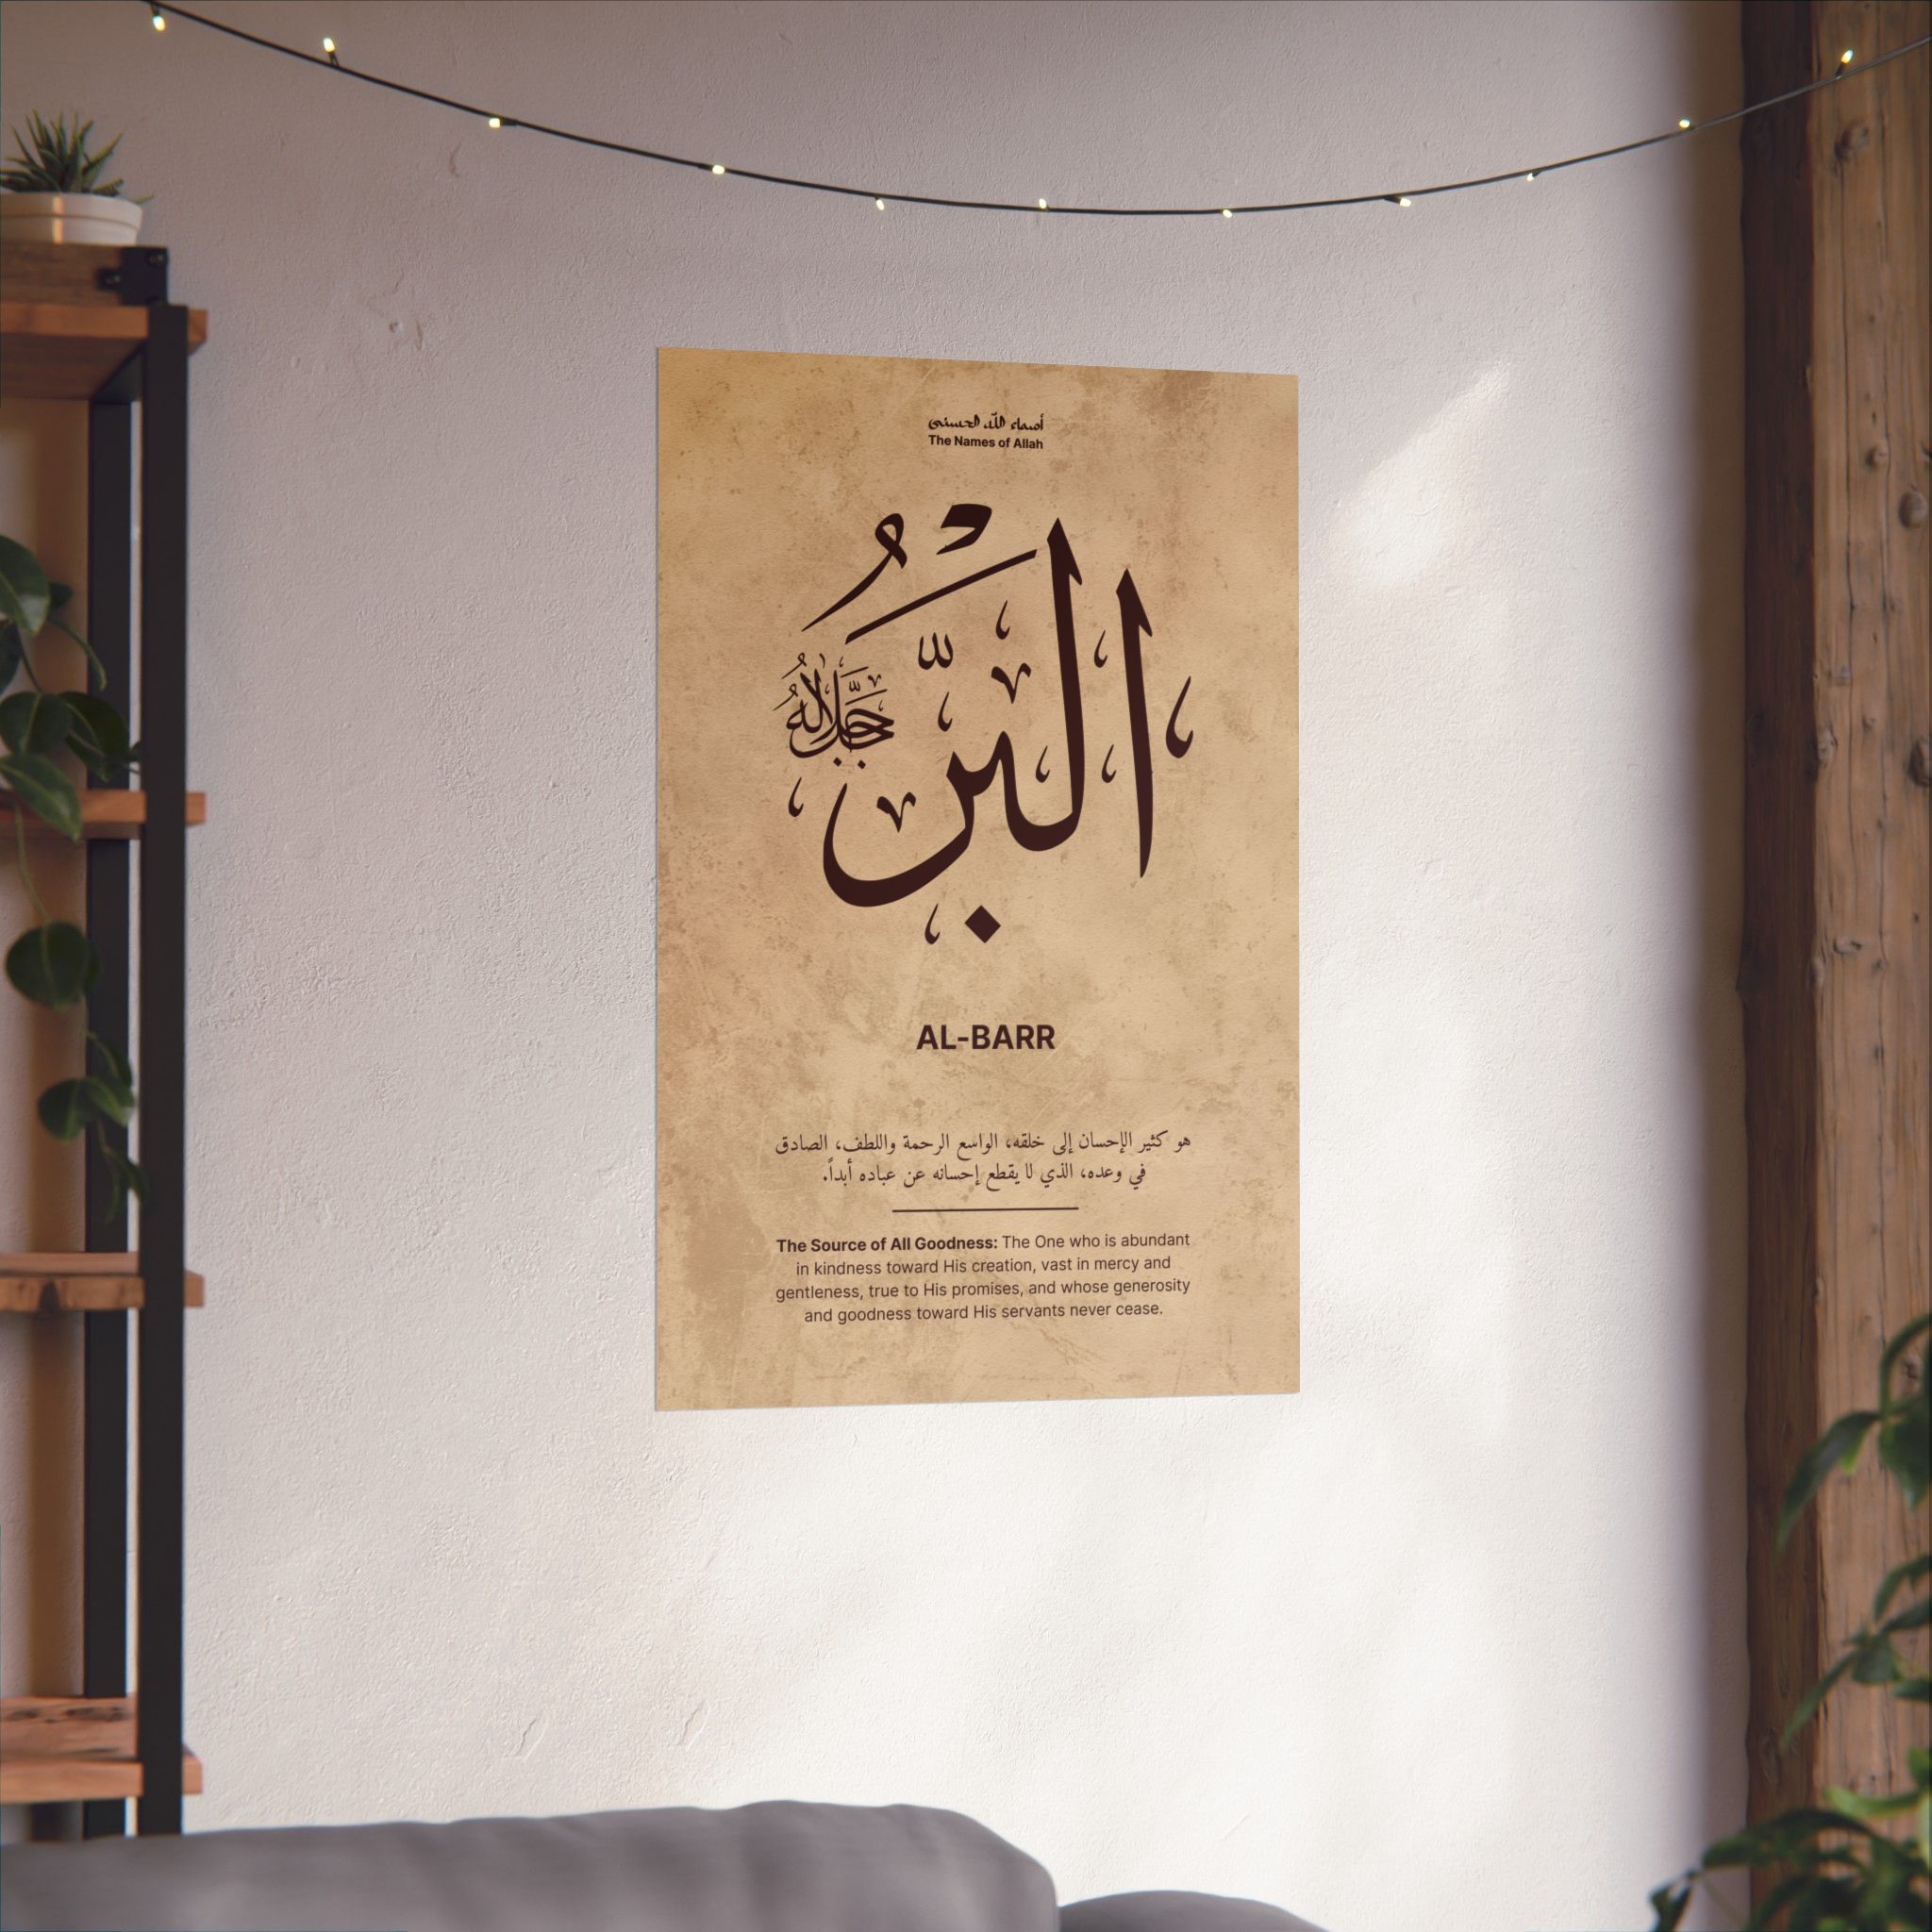 أسماء الله الحسنى
The Names of Allah
البَرُّ
جَلَّ جَلَالُهُ
AL-BARR
هو كثير الإحسان إلى خلقه، الواسع الرحمة واللطف، الصادق
في وعده، الذي لا يقطع إحسانه عن عباده أبداً.
The Source of All Goodness: The One who is abundant
in kindness toward His creation, vast in mercy and
gentleness, true to His promises, and whose generosity
and goodness toward His servants never cease.